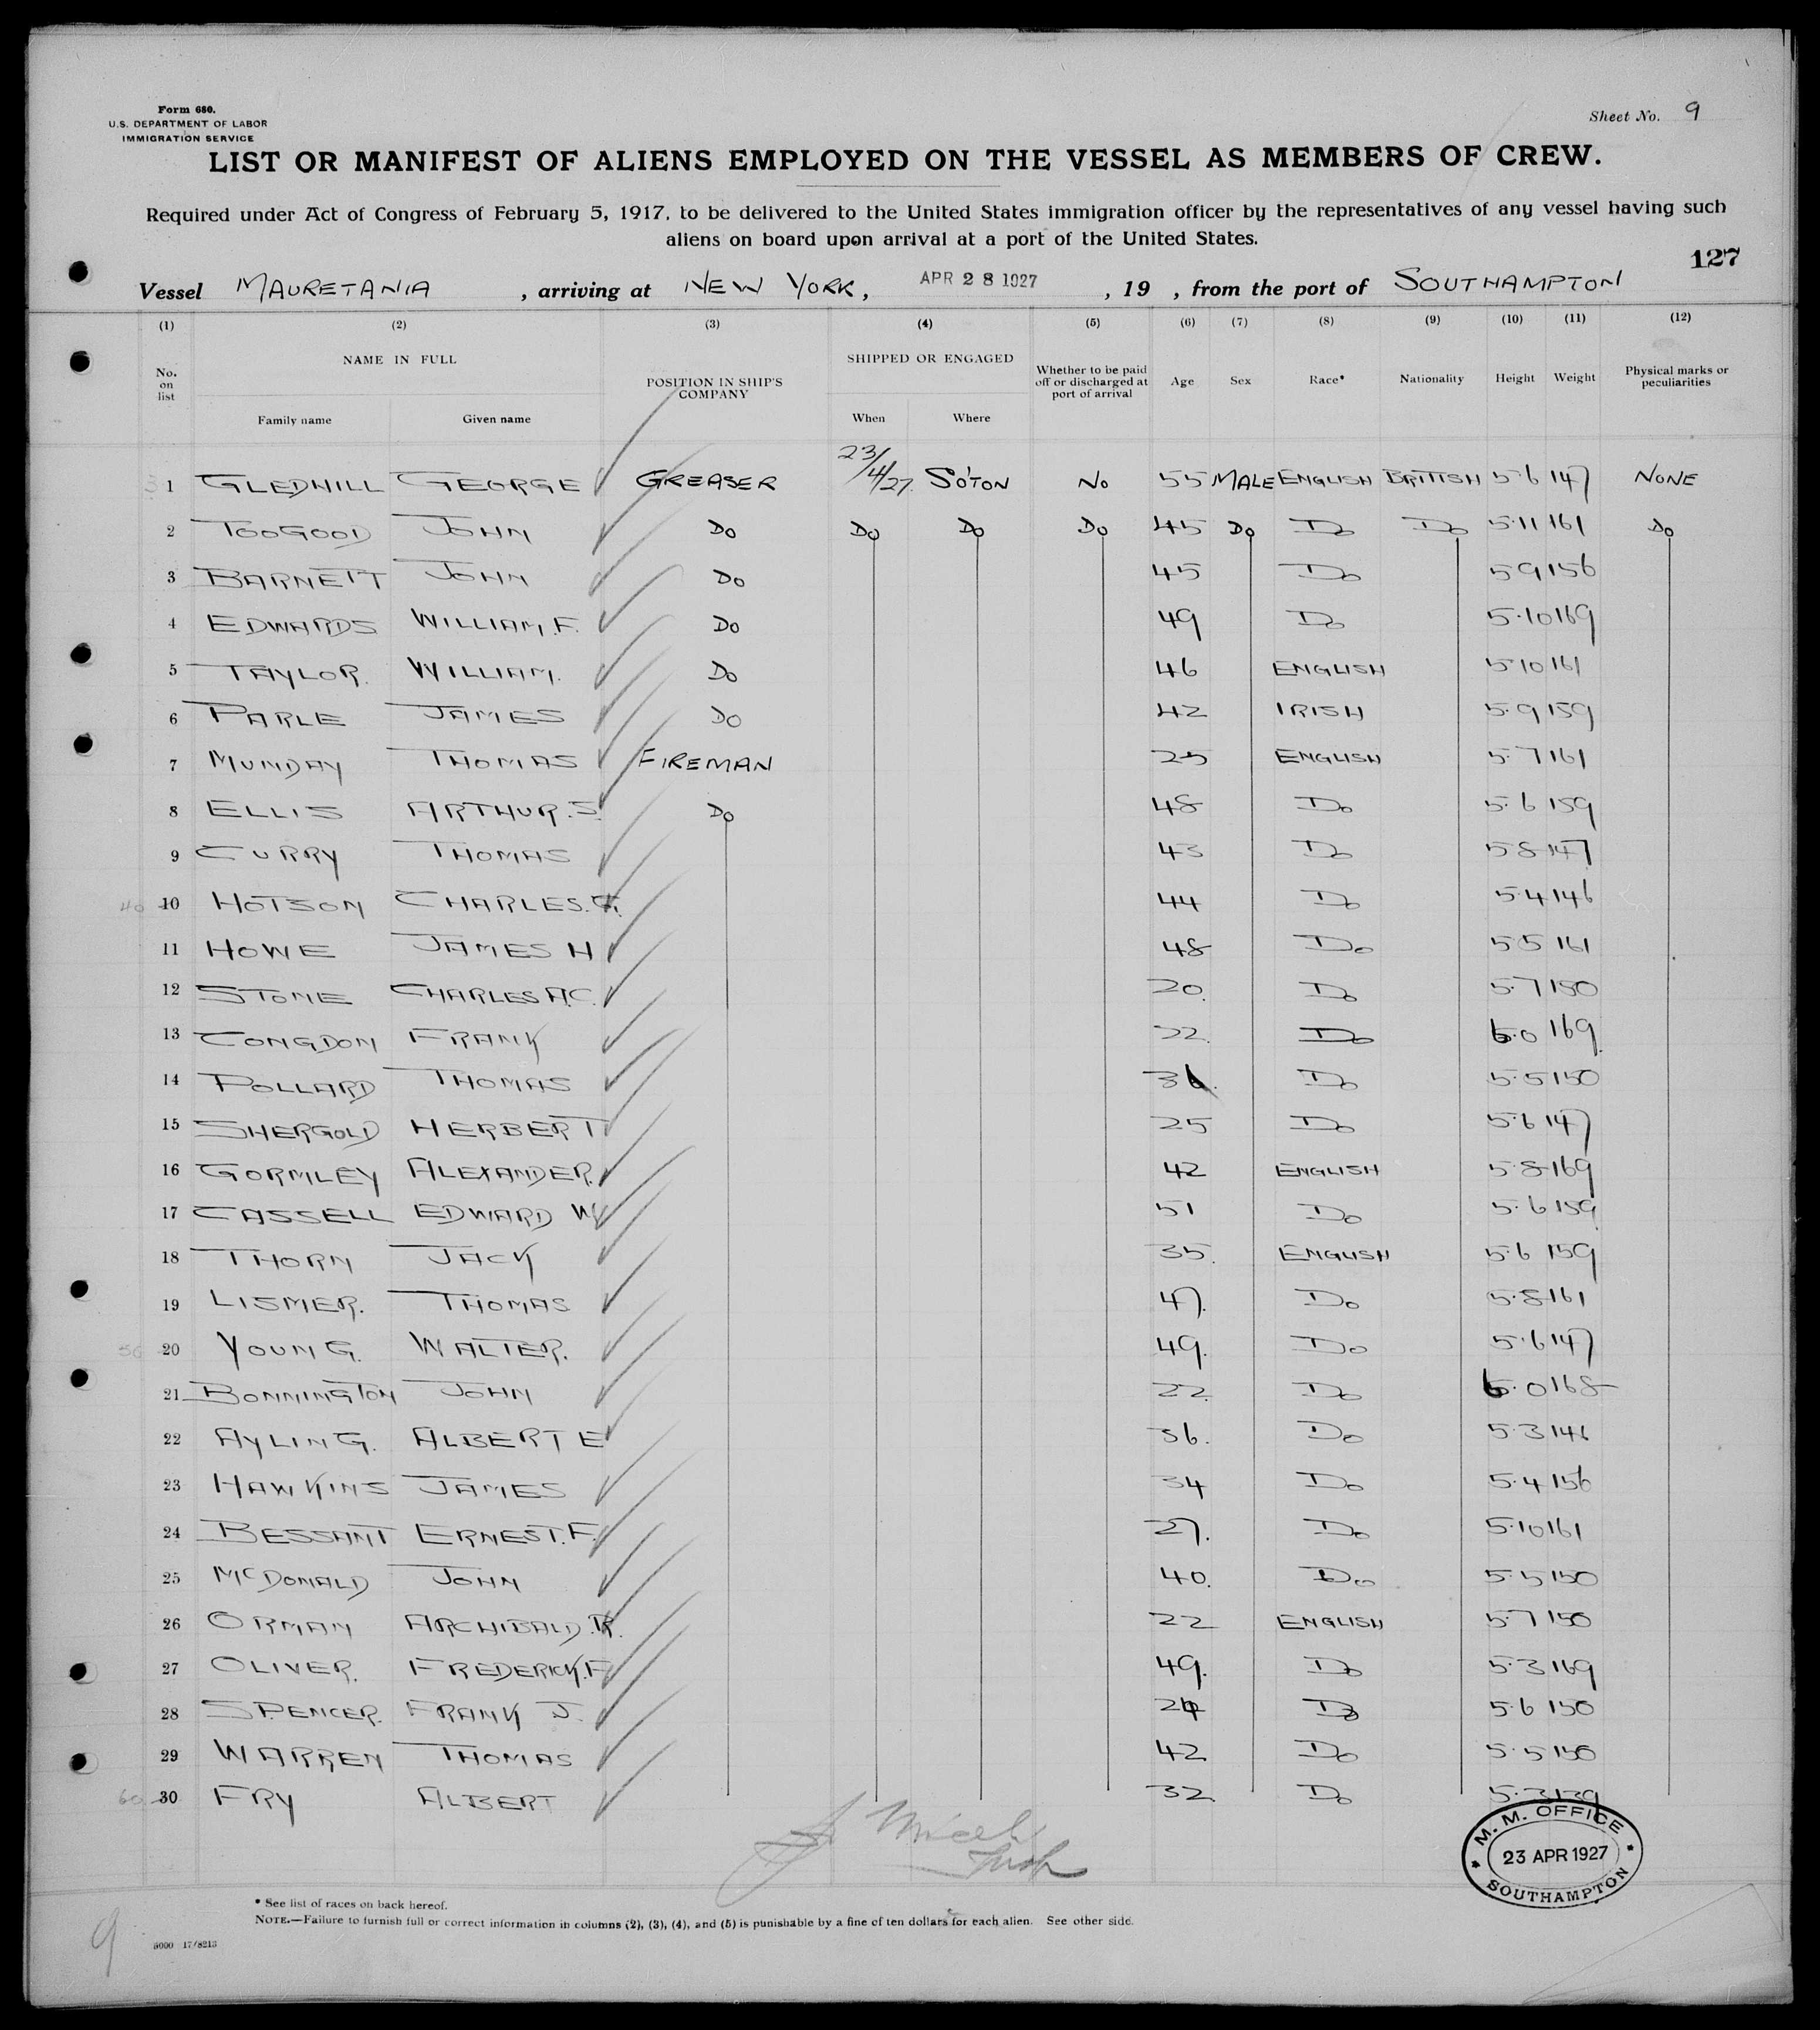 Form 680.
U.S. DEPARTMENT OF LABOR
IMMIGRATION SERVICE
Sheet No. 9
LIST OR MANIFEST OF ALIENS EMPLOYED ON THE VESSEL AS MEMBERS OF CREW.
Required under Act of Congress of February 5, 1917, to be delivered to the United States immigration officer by the representatives of any vessel having such
aliens on board upon arrival at a port of the United States.
127
Vessel MAURETANIA, arriving at NEW YORK, APR 28 1927, 19 , from the port of SOUTHAMPTON
(1) (2) (3) (4) (5) (6) (7) (8) (9) (10) (11) (12)
No. on list NAME IN FULL Family name Given name POSITION IN SHIP'S COMPANY SHIPPED OR ENGAGED When Where Whether to be paid off or discharged at port of arrival Age Sex Race* Nationality Height Weight Physical marks or peculiarities
1 GLEDHILL GEORGE GREASER 23/4/27. SO'TON NO 55 MALE ENGLISH BRITISH 5·6 147 NONE
2 TOOGOOD JOHN DO DO DO DO 45 DO DO DO 5·11 161 DO
3 BARNETT JOHN DO 45 DO 5 9 156
4 EDWARDS WILLIAM.F. DO 49 DO 5·10 169
5 TAYLOR. WILLIAM. DO 46 ENGLISH 5·10 161
6 PARLE JAMES DO 42 IRISH 5·9 159
7 MUNDAY THOMAS FIREMAN 25 ENGLISH 5·7 161
8 ELLIS ARTHUR.S. DO 48 DO 5·6 159
9 CURRY THOMAS 43 DO 5·8 147
40 10 HOTSON CHARLES.G. 44 DO 5·4 146
11 HOWE JAMES H 48 DO 5·5 161
12 STONE CHARLES A.C. 20. DO 5·7 150
13 CONGDON FRANK 22. DO 6·0 169
14 POLLARD THOMAS 36. DO 5·5 150
15 SHERGOLD HERBERT 25 DO 5·6 147
16 GORMLEY ALEXANDER. 42 ENGLISH 5·8 169
17 CASSELL EDWARD W 51 DO 5·6 159
18 THORN JACK 35. ENGLISH 5·6 159
19 LISMER. THOMAS 47. DO 5·8 161
50 20 YOUNG. WALTER. 49. DO 5·6 147
21 BONNINGTON JOHN 22. DO 6·0 168
22 AYLING. ALBERT E 36. DO 5·3 146
23 HAWKINS JAMES 34 DO 5·4 156
24 BESSANT ERNEST.F. 27. DO 5·10 161
25 McDONALD JOHN 40. DO 5·5 150
26 ORMAN ARCHIBALD.R. 22 ENGLISH 5·7 150
27 OLIVER. FREDERICK.F. 49. DO 5·3 169
28 SPENCER. FRANK J. DO 5·6 150
29 WARREN THOMAS 42 DO 5·5 150
60 30 FRY ALBERT 32. DO 5·3 139
M. M. OFFICE
23 APR 1927
SOUTHAMPTON
* See list of races on back hereof.
NOTE.—Failure to furnish full or correct information in columns (2), (3), (4), and (5) is punishable by a fine of ten dollars for each alien. See other side.
9
6000 17/8213